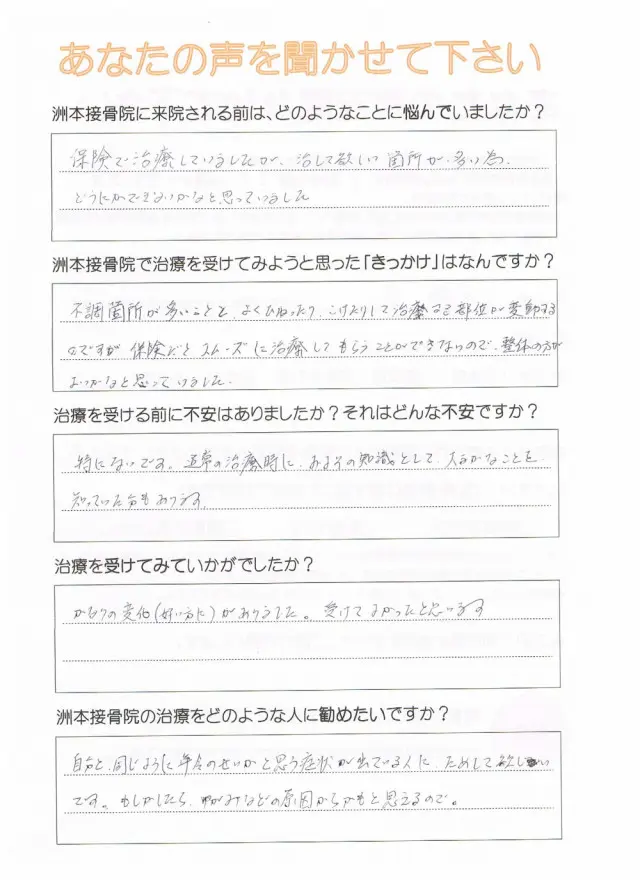 あなたの声を聞かせて下さい
洲本接骨院に来院される前は、どのようなことに悩んでいましたか？
保険で治療していましたが、治して欲しい箇所が多い為、
どうにかできないかなと思っていました
洲本接骨院で治療を受けてみようと思った「きっかけ」はなんですか？
不調箇所が多いことと、よくひねったり、こけたりして治療する部位が変動する
のですが 保険だと スムーズに治療してもらうことができないので、整体の方が
よいかなと思っていました.
治療を受ける前に不安はありましたか？それはどんな不安ですか？
特にないです。通常の治療時に、およその知識として、大まかなことを
知っていた方もあります。
治療を受けてみていかがでしたか？
かなりの変化(好い方に)がありました。受けてよかったと思います
洲本接骨院の治療をどのような人に勧めたいですか？
自分と同じように年令のせいかと思う症状が出ている人に、ためして欲しい
です。もしかしたら、ゆがみなどの原因からかもと思えるので。